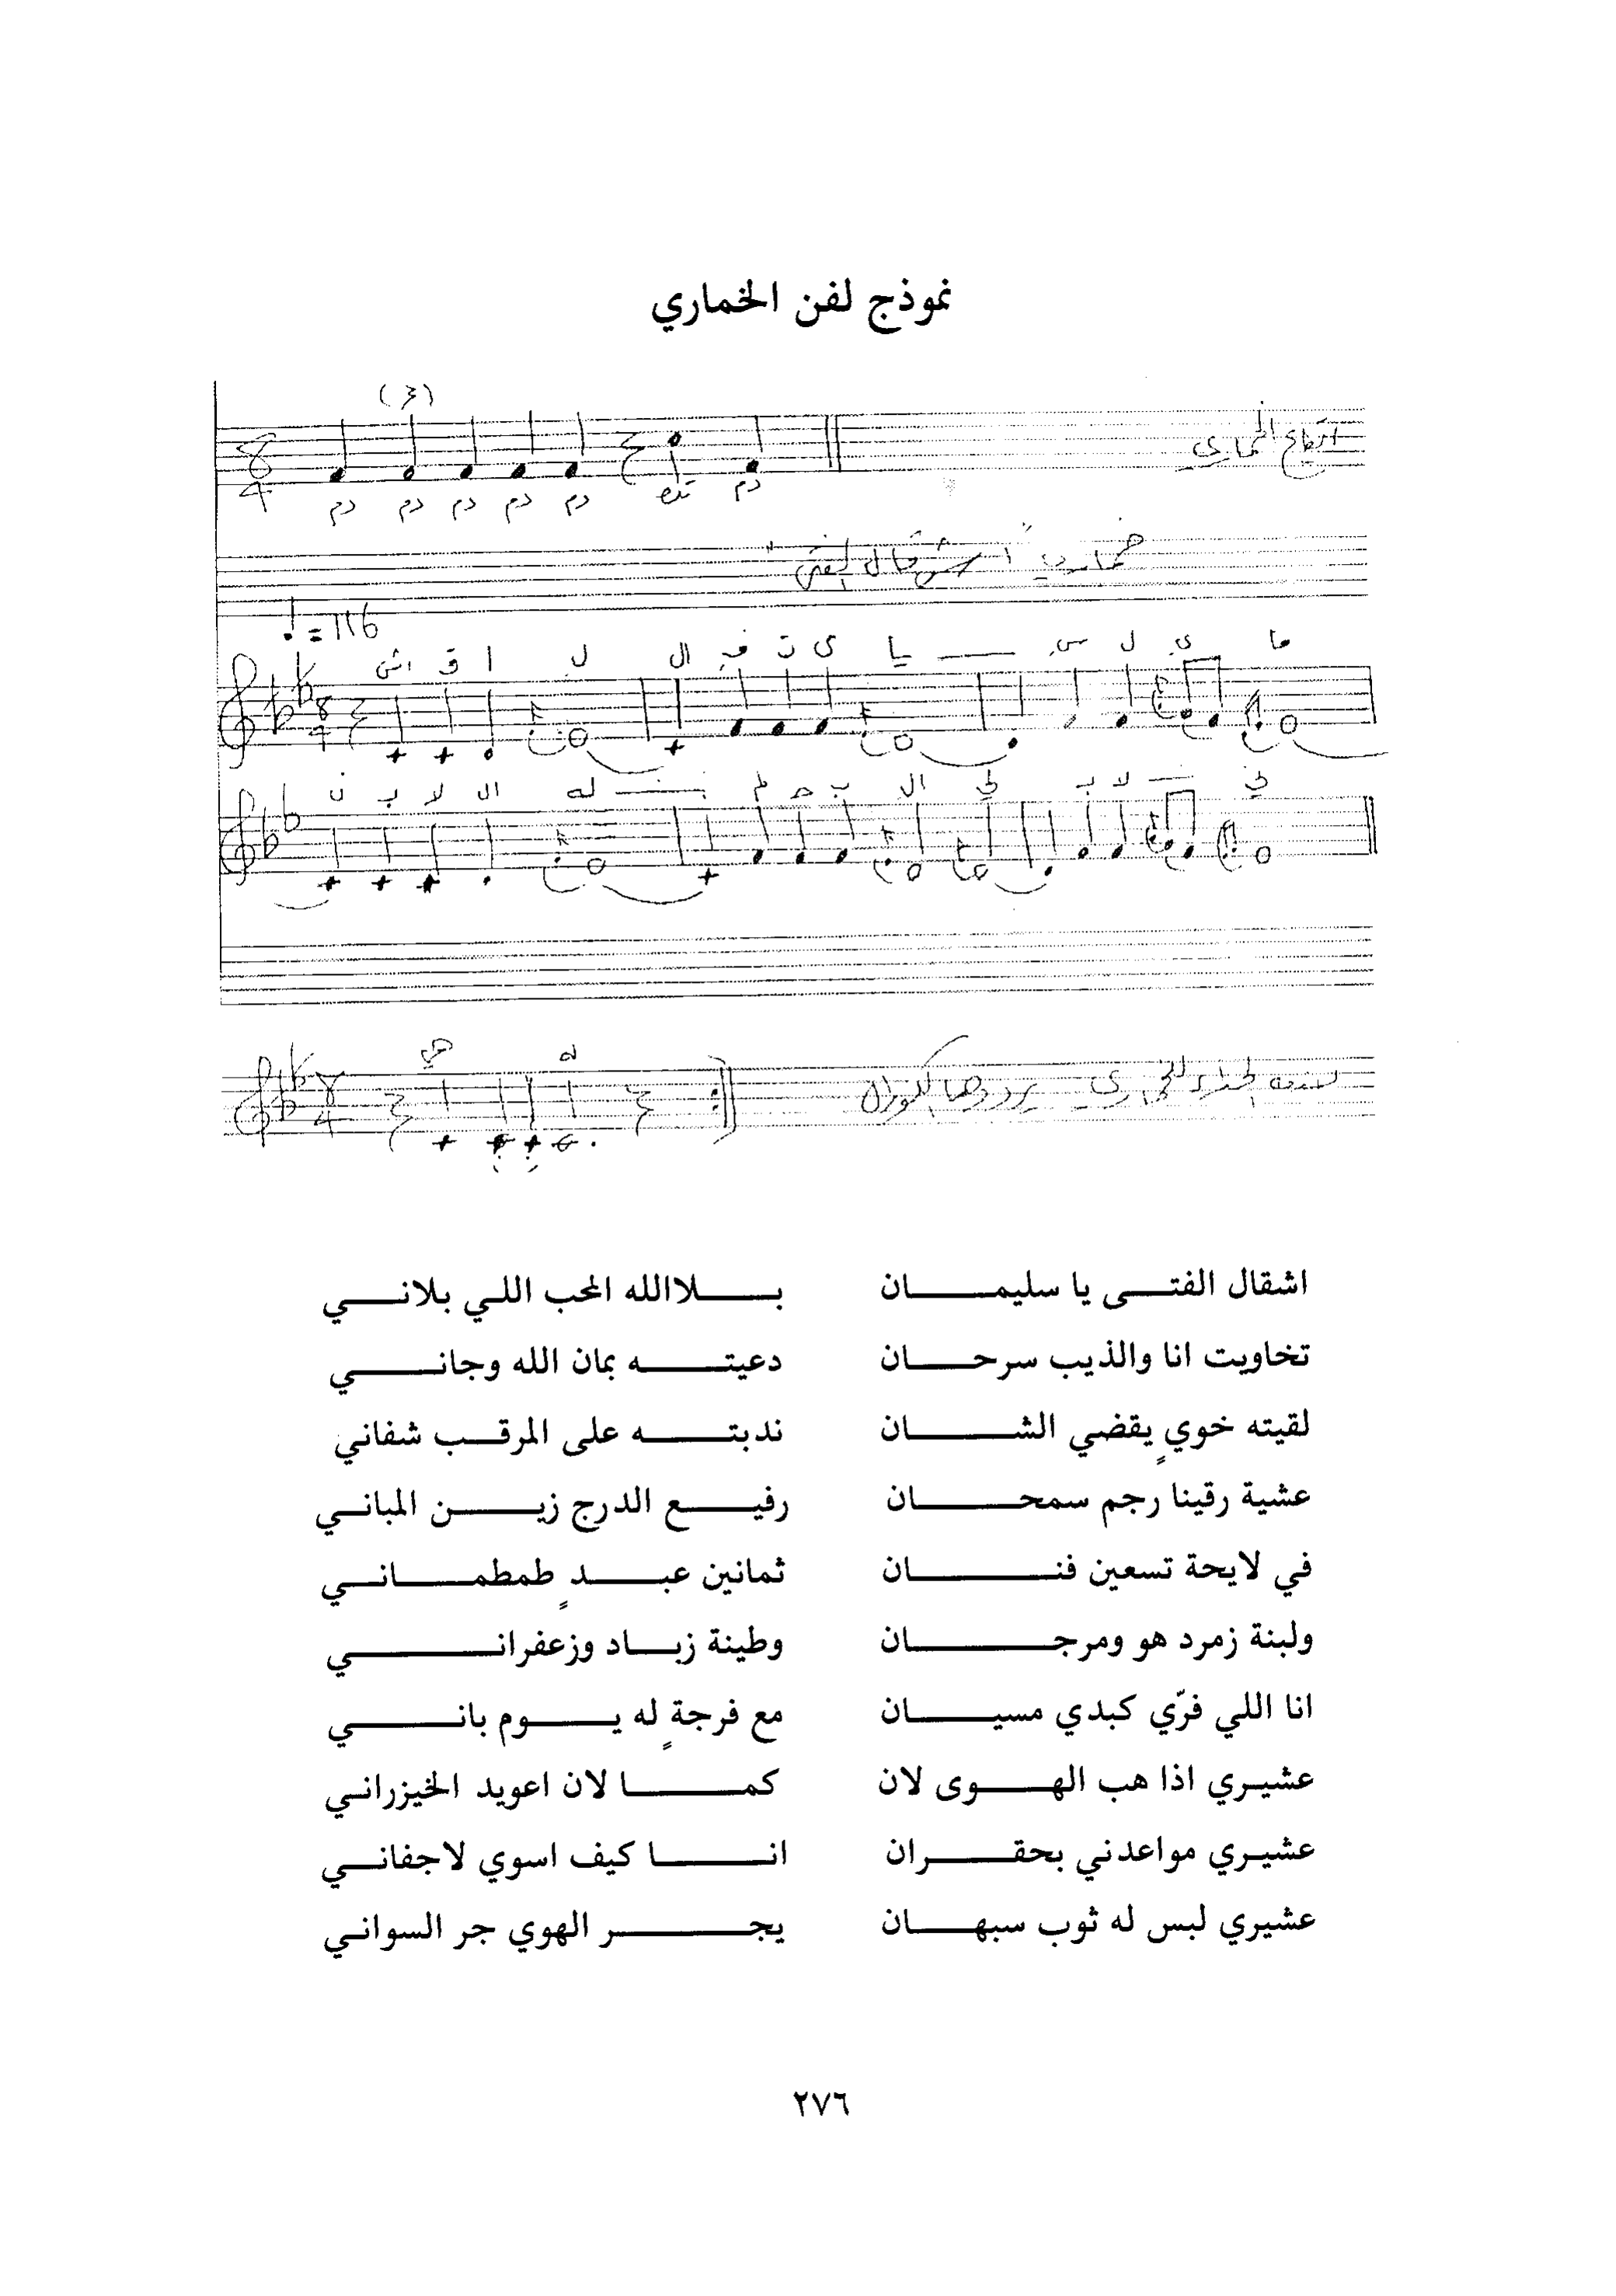 نموذج لفن الخماري
(٤)
8
4
دم دم دم دم دم تك دم
ايقاع الخماري
خماري " اشقال الفتى "
♩ = 116
اش ق ا ل ال ف ت ى يا س ل ي ما
ن ب لا ال له م ح ب ال لي ب لا ني
8
4
هي له
اشقال الفتـــى يا سليمـــــان بــــلاالله المحب اللـي بلانــــي
تخاويت انا والذيب سرحــــان دعيتـــــه بمان الله وجانـــــي
لقيته خويٍ يقضي الشـــــان ندبتــــــه على المرقـــب شفاني
عشية رقينا رجم سمحـــــان رفيــــع الدرج زيــــن المبانــي
في لايحة تسعين فنــــــان ثمانين عبـــدٍ طمطمــــانــي
ولبنة زمرد هو ومرجـــــــان وطينة زبـــاد وزعفرانــــــــي
انا اللي فرّي كبدي مسيــــان مع فرجةٍ له يــــوم بانـــــي
عشيـري اذا هب الهــــوى لان كمــــــا لان اعويد الخيزرانـي
عشيـري مواعدني بحقـــــران انـــــــا كيف اسوي لاجفانــي
عشيري لبس له ثوب سبهــــان يجــــــــر الهوي جر السوانـي
٢٧٦